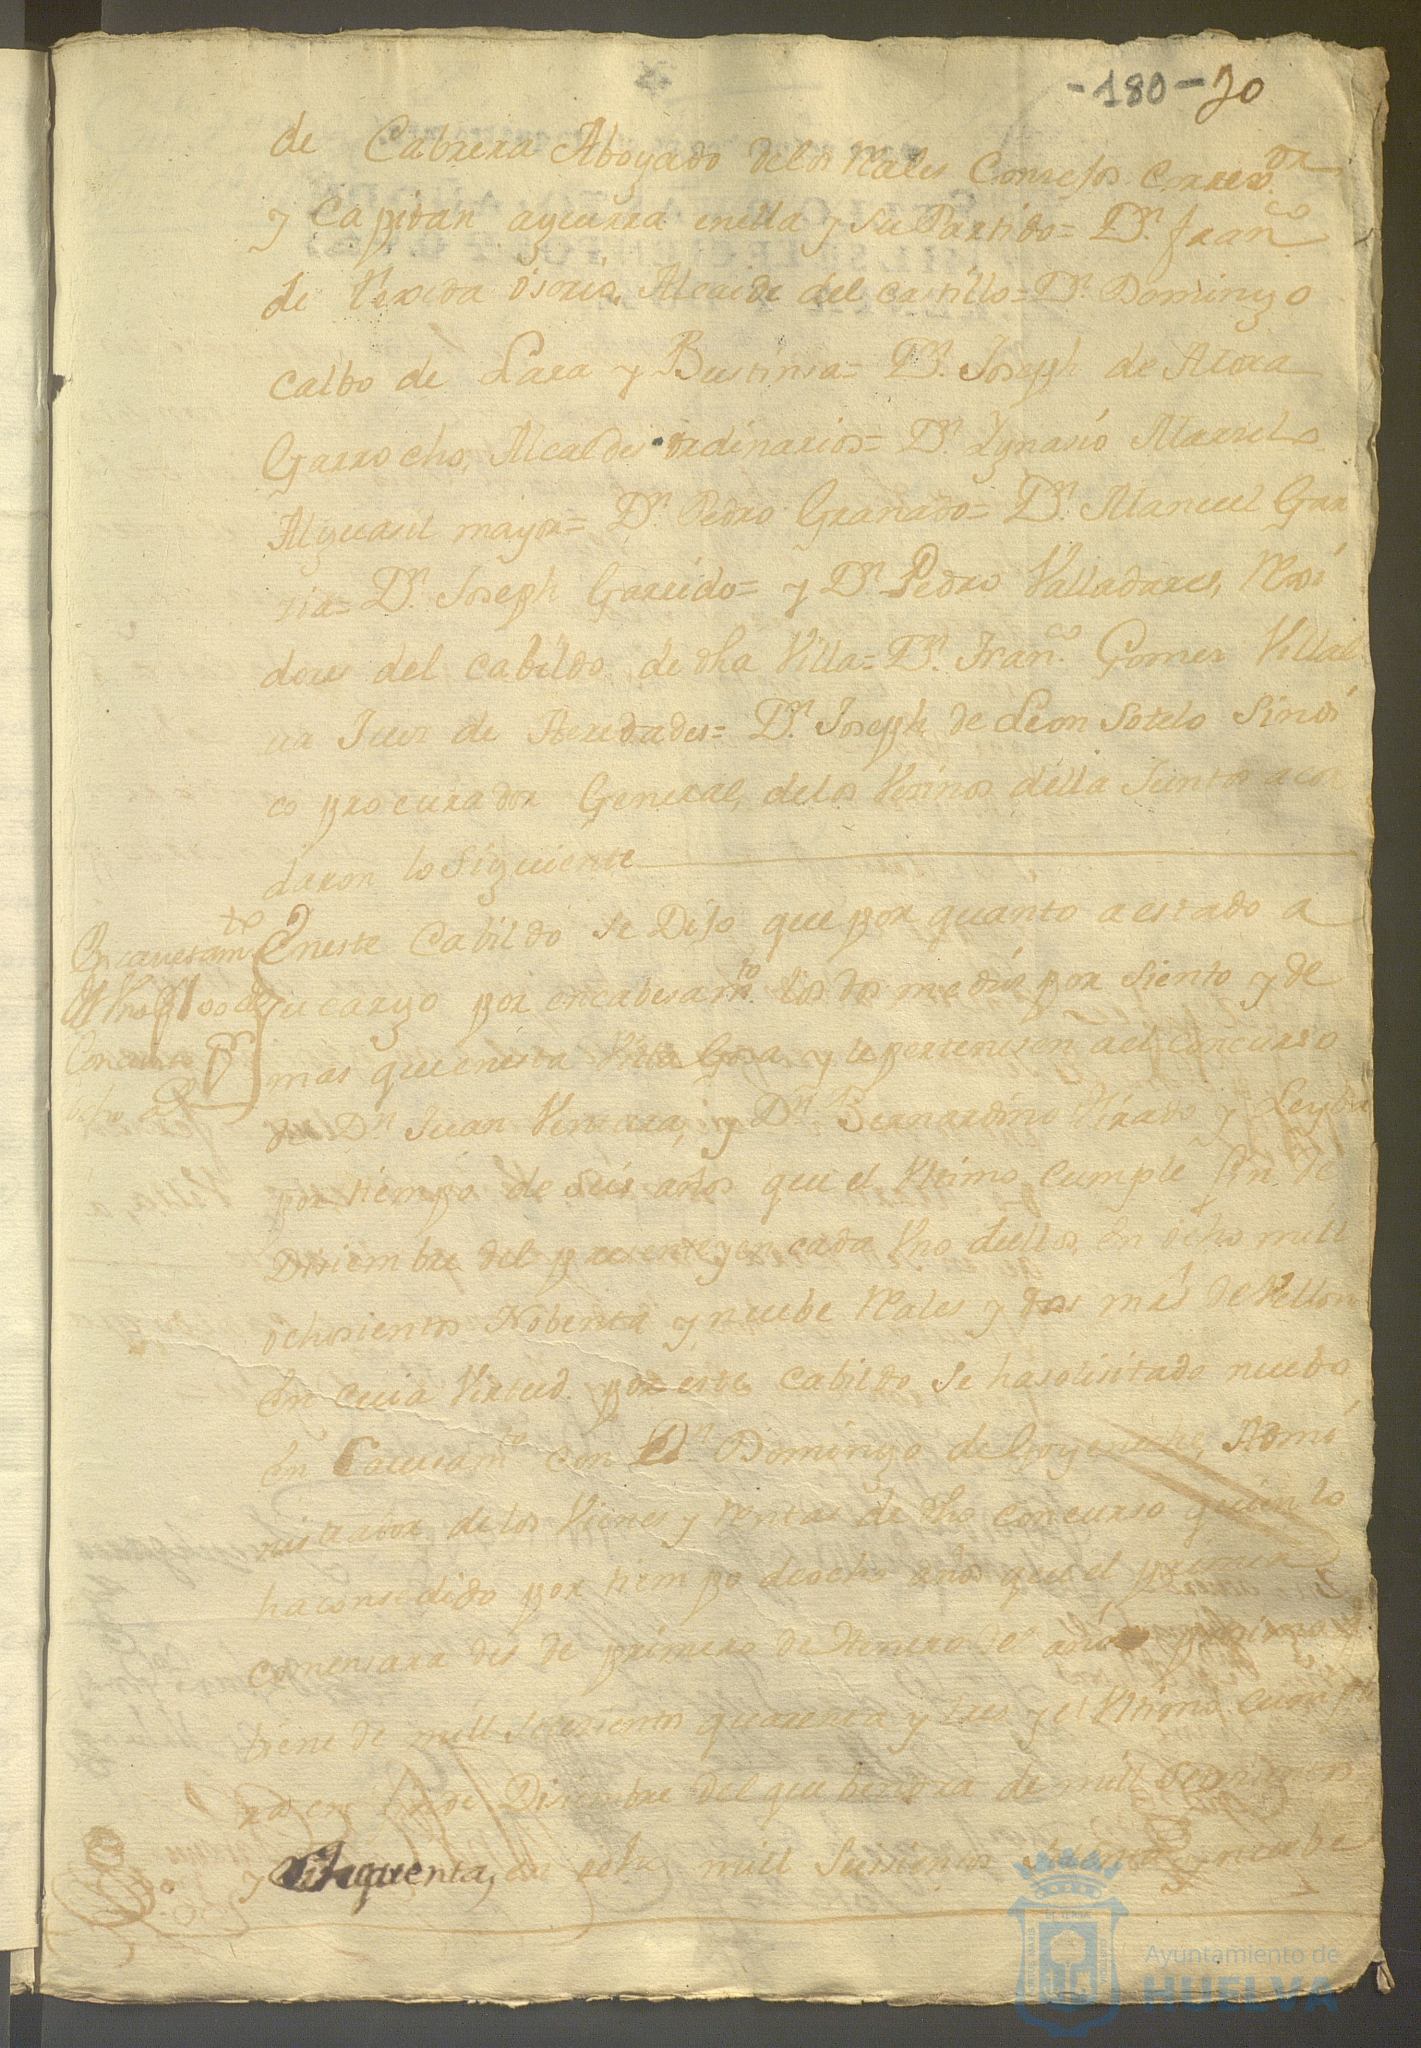 -180-70
de Cabrera Abogado delos Rales Consejos Corregor
y Capitan aguerra enella y su Partido= Dn. Franco
de Osorio, Alcaide del castillo= Dn. Domingo
calbo de Lara y Bustinsa= Dn. Joseph de Mora
Garrocho, Alcaldes ordinarios= Dn. Ygnasio
Alguasil mayor= Dn. Pedro Granado= Dn. Manuel Gar
sia= Dn. Joseph Garrido= y Dn. Pedro Valladares, Rexi
dores del cabildo de dha Villa= Dn. Franco. Gomez Villal
va Juez de Heredades= Dn. Joseph de Leon Sotelo Sindi
co procurador General, delos Vesinos della Juntos acor
daron lo Siguiente
Encavesamto
Eneste Cabildo se Dijo que por quanto a estado a
su cargo por encabesamto. los dos medios por siento y de
Concurso
mas que enesta Villa Gosa y le pertenesen a el concurso
ocho as
de Dn Juan Ventura, y Dn. Bernardino Tirado y Leyba
por tiempo de seis años que el Vltimo cumple fin de
Disiembre del presente y en cada Vno dellos, En ocho mill
ochosientos Nobenta y nuebe Rales y dos mrs de Vellon
En cuia Virtud por este cabildo se ha solisitado nuebo
En Cavesamto con Dn Domingo de Goyeneche, Admi
nistrador de los Vienes y Rentas de dho concurso quien lo
ha consedido por tiempo de ocho años que el primero
comensara des de primero de Henero del año proximo q
biene de mill setesientos quarenta y tres y el Vltimo cumpli
ra en fin de Disiembre del que bendra de mill Setesientos
y Sinquenta, en ocho mill Seissientos y nuebe
Ayuntamiento de
HUELVA